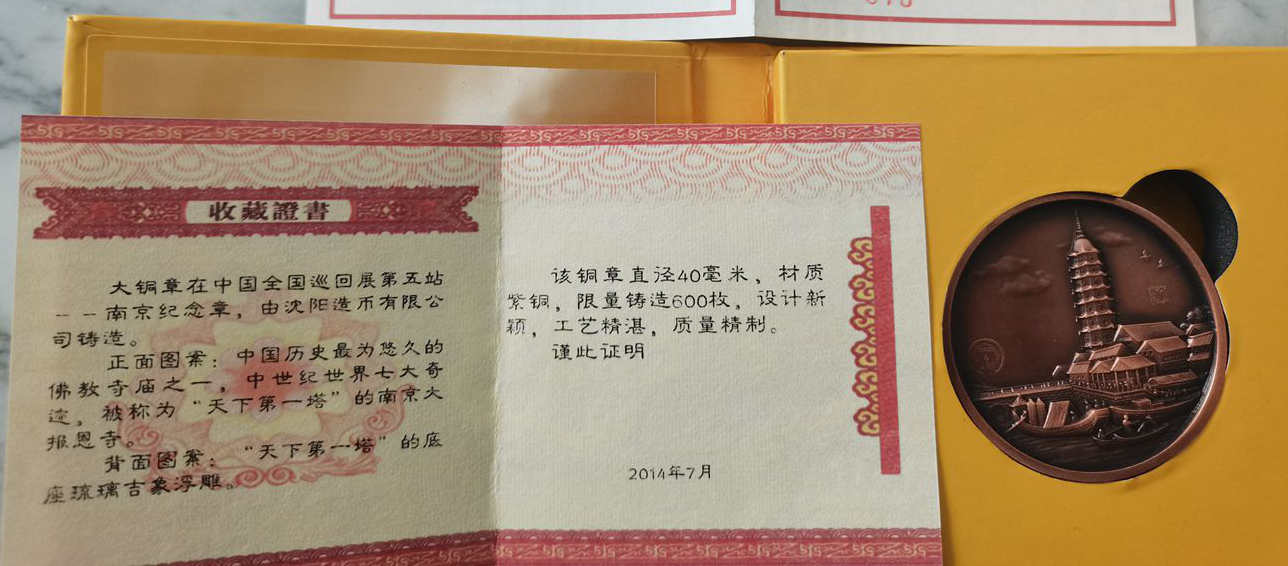 收藏證書
大铜章在中国全国巡回展第五站
--南京纪念章，由沈阳造币有限公
司铸造。
正面图案：中国历史最为悠久的
佛教寺庙之一，中世纪世界七大奇
迹，被称为“天下第一塔”的南京大
报恩寺。
背面图案：“天下第一塔”的底
座琉璃吉象浮雕。
该铜章直径40毫米，材质
紫铜，限量铸造600枚，设计新
颖，工艺精湛，质量精制。
谨此证明
2014年7月